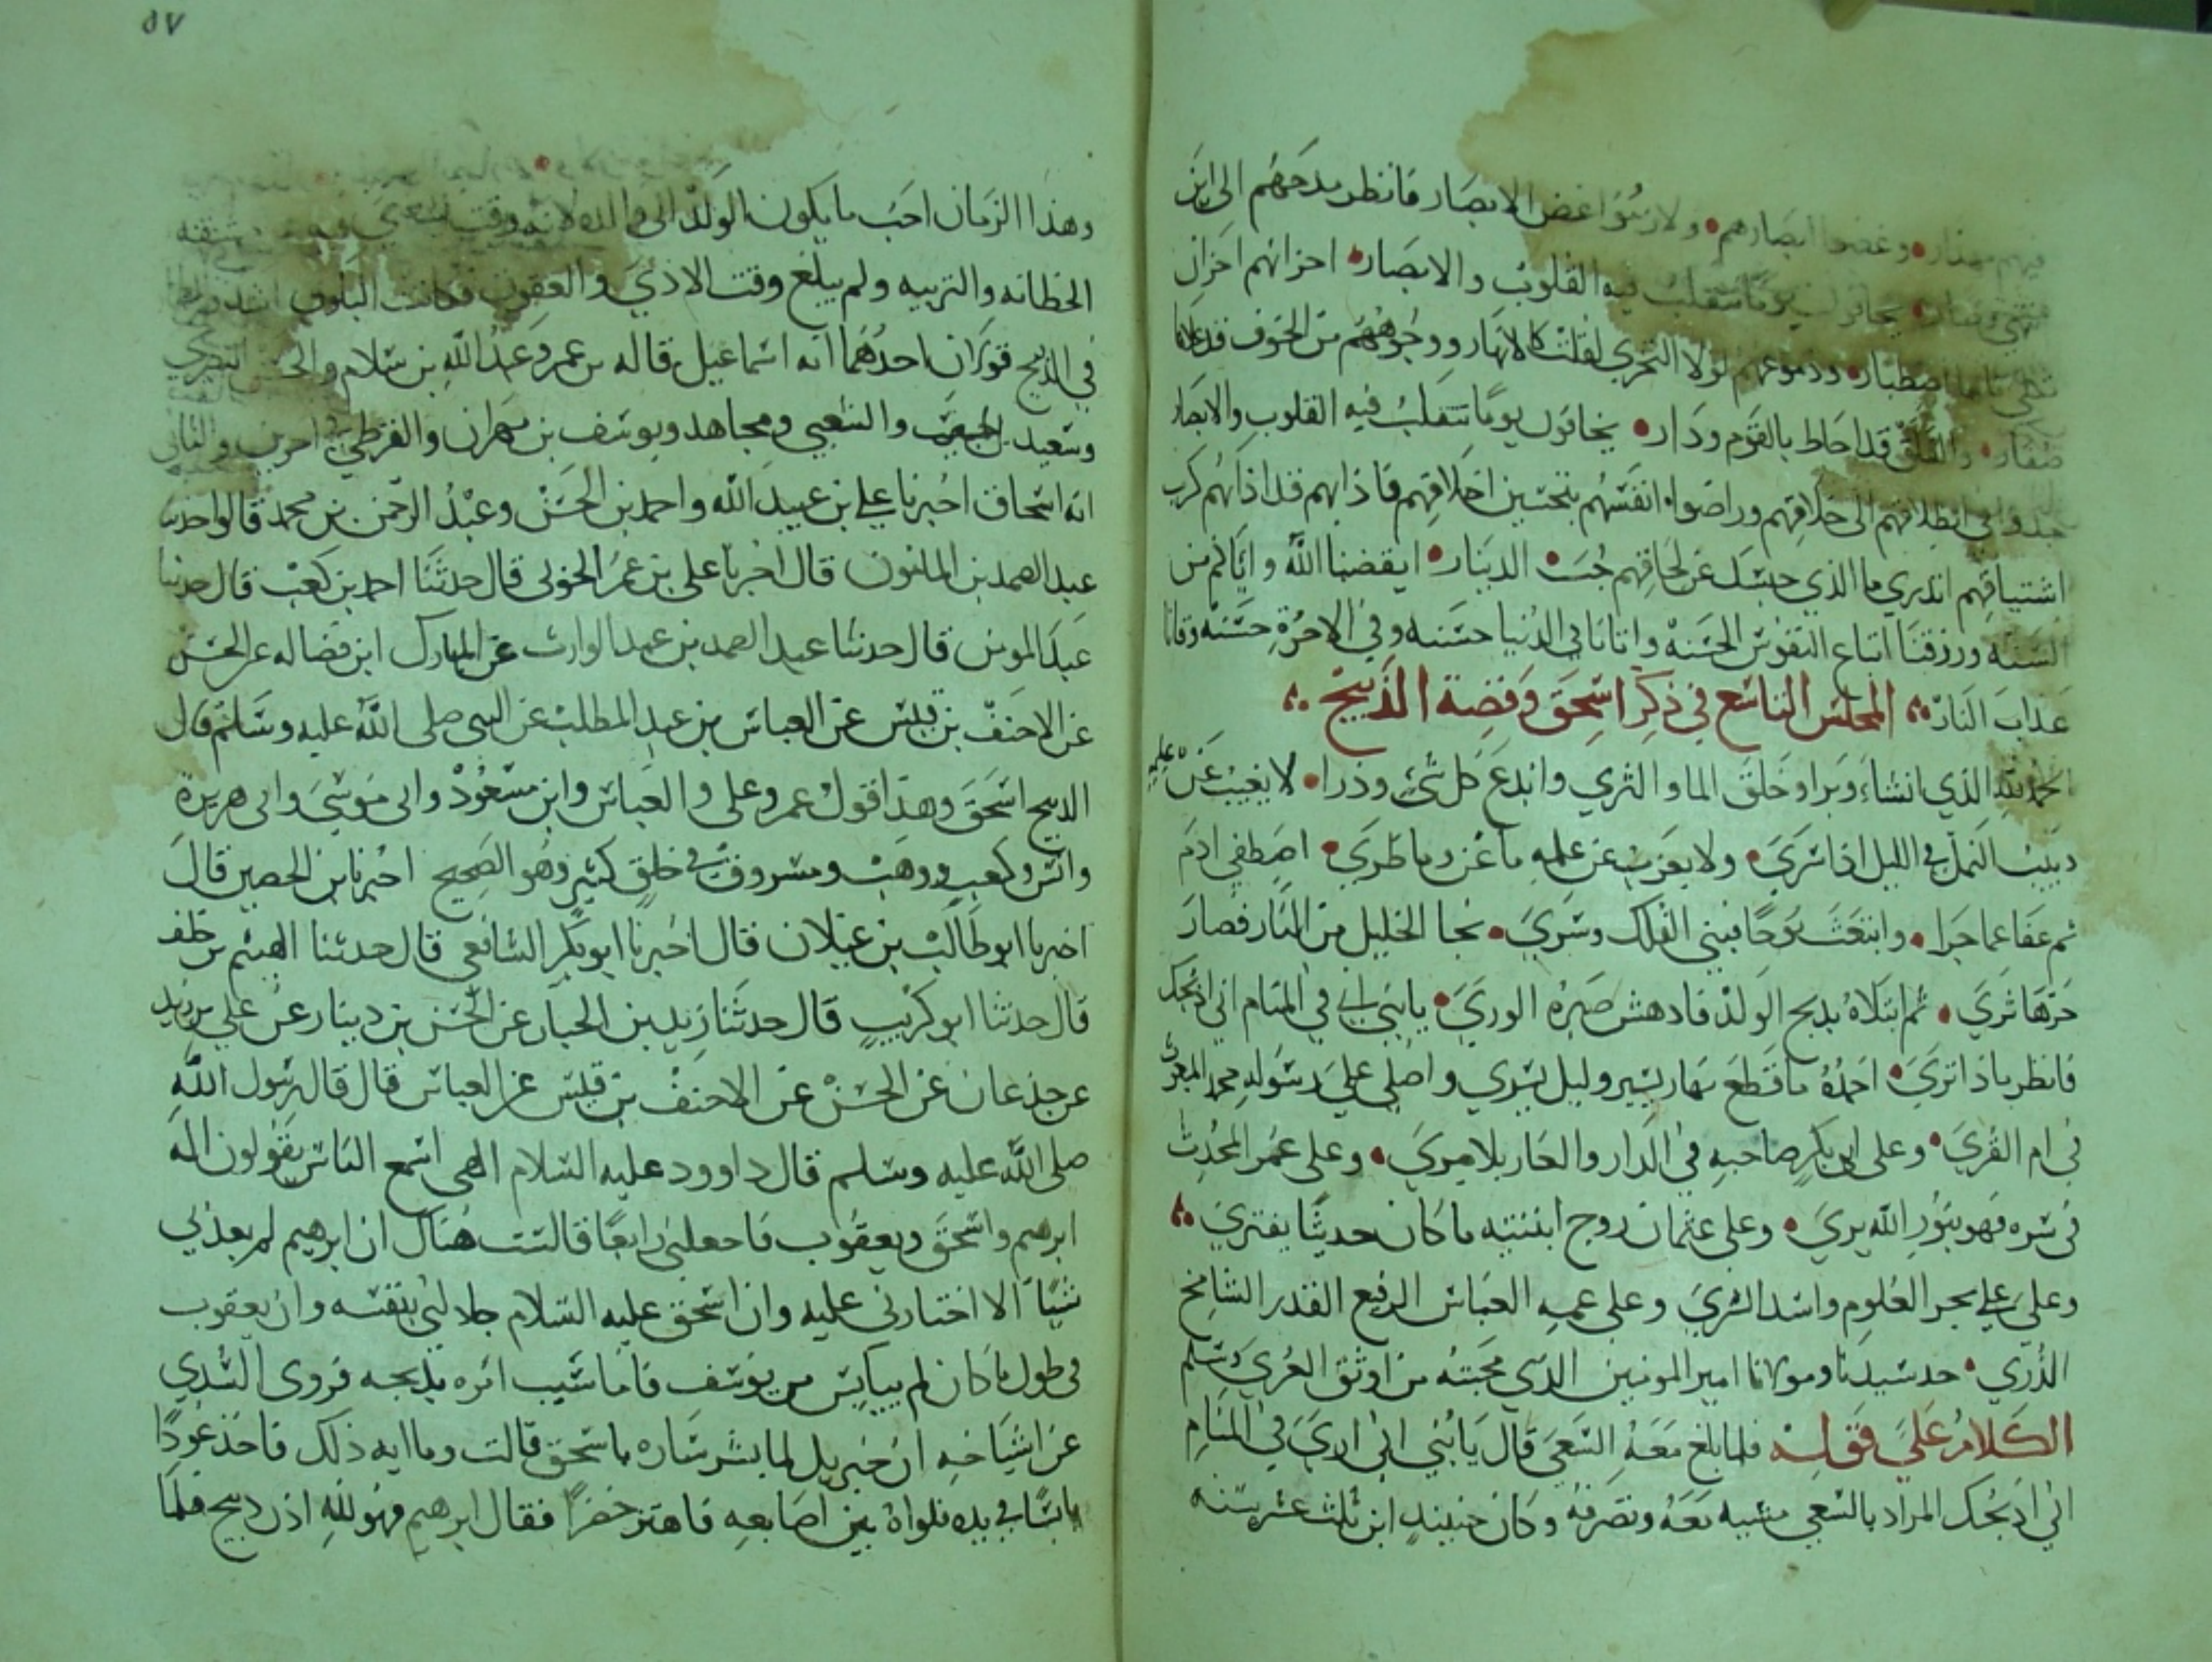 وغضوا ابصارهم ولازموا غض الابصار فانظر مدحهم الى اين
يوما تتقلب فيه القلوب والابصار احزانهم احزان
ودموعهم لولا التحري لقلت كالانهار ووجوههم من الخوف
والقلق قد احاط بالقوم ودار يخافون يوما تتقلب فيه القلوب والابصار
وراضوا انفسهم بتحسين اخلاقهم فاذابهم قد اذابهم كرب
اشتياقهم اتدري ما الذي حبسك عن لحاقهم حب الدينار ايقضنا الله واياكم من
السنه ورزقنا اتباع النفوس الحسنه واتانا في الدنيا حسنه وفي الاخرة حسنه وقانا
عذاب النار المجلس التاسع في ذكر اسحق وقصة الذبيح
الحمد لله الذي انشاء وبرا وخلق الما والثري وابدع كل شئ وذرا لا يغيب عن علمه
دبيب النمل في الليل اذا سري ولا يعزب عن علمه ما عن وما طري اصطفي ادم
ثم عفا عما جرا وابتعث نوحا فبني الفلك وسري نجا الخليل من النار فصار
حرها ثري ثم ابتلاه بذبح الولد فادهش صبره الوري يا بني اني في المنام اني اذبحك
فانظر ماذا تري احمده ما قطع نهار بسير وليل بسري واصلي علي رسوله محمد المبعوث
في ام القري وعلى ابي بكر صاحبه في الدار والغار بلا مري وعلى عمر المحدث
في سره فهو بنور الله يري وعلى عثمان زوج ابنتيه ما كان حديثا يفتري
وعلى علي بحر العلوم واسد الشري وعلى عمه العباس الرفيع القدر الشامخ
الذري جد سيدنا ومولانا امير المومنين الذي محبته من اوثق العري وسلم
الكلام على قوله فلما بلغ معه السعي قال يا بني اني اري في المنام
اني اذبحك المراد بالسعي مشيه معه وتصرفه وكان حينيذ ابن ثلث عشر سنه
٥٧
وهذا الزمان احب ما يكون الولد الى والده لانه وقت
الحظانه والتربيه ولم يبلغ وقت الاذي والعقوق فكانت البلوي
في الذبيح قولان احدهما انه اسماعيل قاله بن عمر وعبد الله بن سلام والحسن البصري
وسعيد بن المسيب والشعبي ومجاهد ويوسف بن مهران والقرظي في اخرين والثاني
انه اسحاق اخبرنا علي بن عبيد الله واحمد بن الحسن وعبد الرحمن بن محمد قالوا حدثنا
عبد الصمد بن المامون قال اخبرنا على بن عمر قال حدثنا احمد بن كعب قال حدثنا
عبد المومن قال حدثنا عبد الصمد بن عبد الوارث عن المبارك ابن فضاله عن الحسن
عن الاحنف بن قيس عن العباس بن عبد المطلب عن النبي صلى الله عليه وسلم قال
الذبيح اسحق وهذا قول عمر وعلى والعباس وابن مسعود وابى موسي وابى هريرة
وانس وكعب ووهب ومسروق في خلق كثير وهو الصحيح اخبرنا بن الحصين قال
اخبرنا ابو طالب بن غيلان قال اخبرنا ابو بكر الشافعي قال حدثنا الهيثم بن خلف
قال حدثنا ابو كريب قال حدثنا زيد بن الحباب عن الحسن بن دينار عن علي بن زيد
عن جذعان عن الحسن عن الاحنف بن قيس عن العباس قال قال رسول الله
صلى الله عليه وسلم قال داوود عليه السلام الهي اسمع الناس يقولون اله
ابرهيم واسحق ويعقوب فاجعلني رابعا قال لست هناك ان ابرهيم لم يعدل بي
شيا الا اختارني عليه وان اسحق عليه السلام جاد لي بنفسه وان يعقوب
في طول ما كان لم يبايس من يوسف فاما سبب امره بذبحه فروى السدي
عن اشياخه ان جبريل لما بشر ساره باسحق قالت وما ايه ذلك فاخذ عودا
يابسا في يده فلواه بين اصابعه فاهتز خضرا فقال ابرهيم فهو لله اذن ذبيح فلما